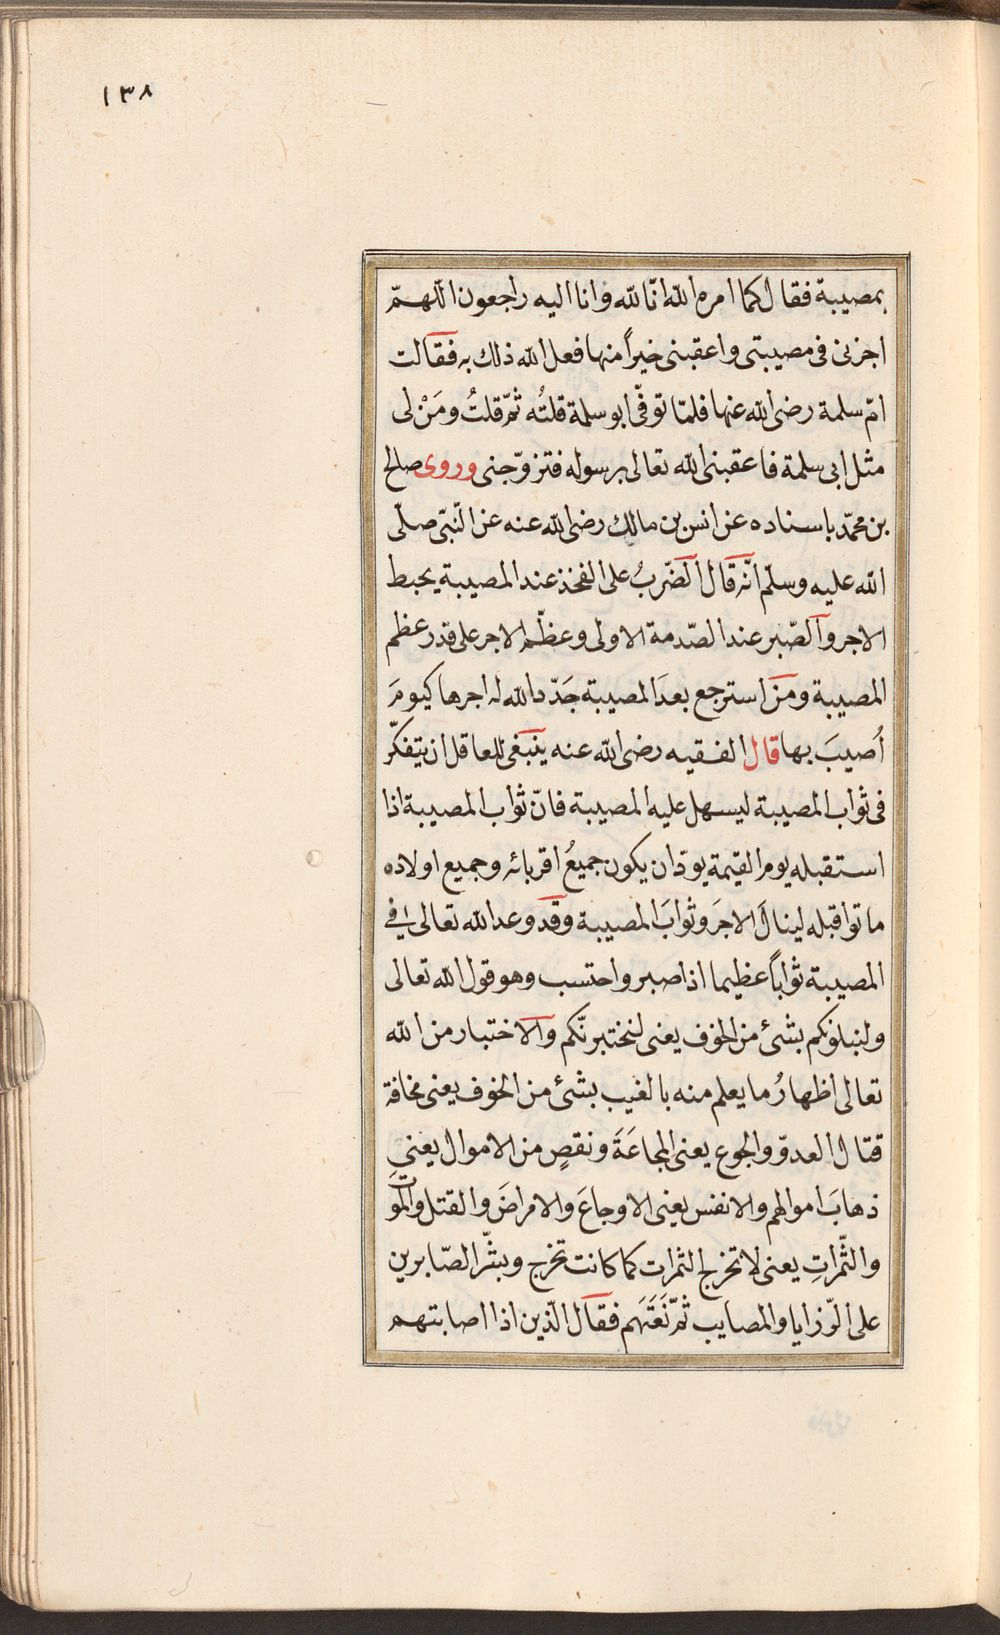 ١٣٨
بمصيبة فقال كما امره الله انّا لله وانا اليه راجعون اللّهمّ
اجزنى فى مصيبتى واعقبنى خيراً منها فعل الله ذلك به فقالت
امّ سلمة رضى الله عنها فلمّا توفّى ابو سلمة قلتُه ثمّ قلتُ ومَنْ لى
مثل ابى سلمة فاعقبنى الله تعالى برسوله فتزوّجنى وروى صالح
بن محمّد باسناده عن انس بن مالك رضى الله عنه عن النّبىّ صلّى
الله عليه وسلّم انّه قال الضّربُ على الفخذ عند المصيبة يحبط
الاجر والصّبر عند الصّدمة الاولى وعظّم الاجر على قدر عظم
المصيبة ومن استرجع بعدَ المصيبة جَدّد الله له اجرها كيومَ
أُصيبَ بها قال الفقيه رضى الله عنه ينبغى للعاقل ان يتفكّر
فى ثواب المصيبة ليسهل عليه المصيبة فانّ ثواب المصيبة اذا
استقبله يوم القيمة يودّ ان يكون جميعُ اقربائه وجميع اولاده
ماتوا قبله لينالَ الاجرَ وثوابَ المصيبة وقد وعد الله تعالى في
المصيبة ثواباً عظيما اذا صبر واحتسب وهو قول الله تعالى
ولنبلونّكم بشئ من الخوف يعنى لنختبرنّكم والاختبار من الله
تعالى اظهارُ ما يعلم منه بالغيب بشئ من الخوف يعنى مخافة
قتال العدوّ والجوع يعنى المجاعَةَ ونقصٍ من الاموال يعنى
ذهابَ اموالهم والانفس يعنى الاوجاعَ والامراضَ والقتل والموتَ
والثّمراتِ يعنى لا تخرج الثمرات كما كانت تخرج وبشّر الصّابرين
على الرّزايا والمصايب ثمّ نَعَتَهم فقال الّذين اذا اصابتهم